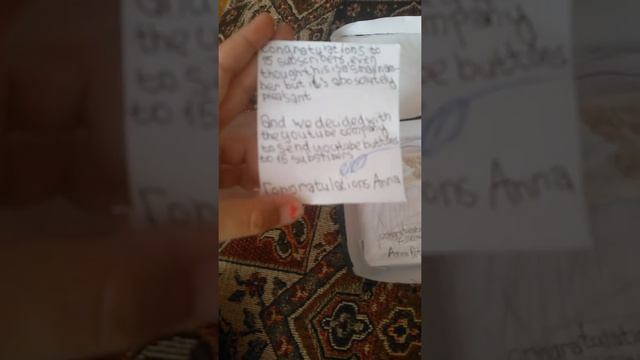 congratulations to
15 subscribers, even
thought this is a small num-
ber but it's absolutely
pleasant
And we decided with
the youtube company
to send youtube buttons
to 15 subsribers
Congratulations Anna
Anna